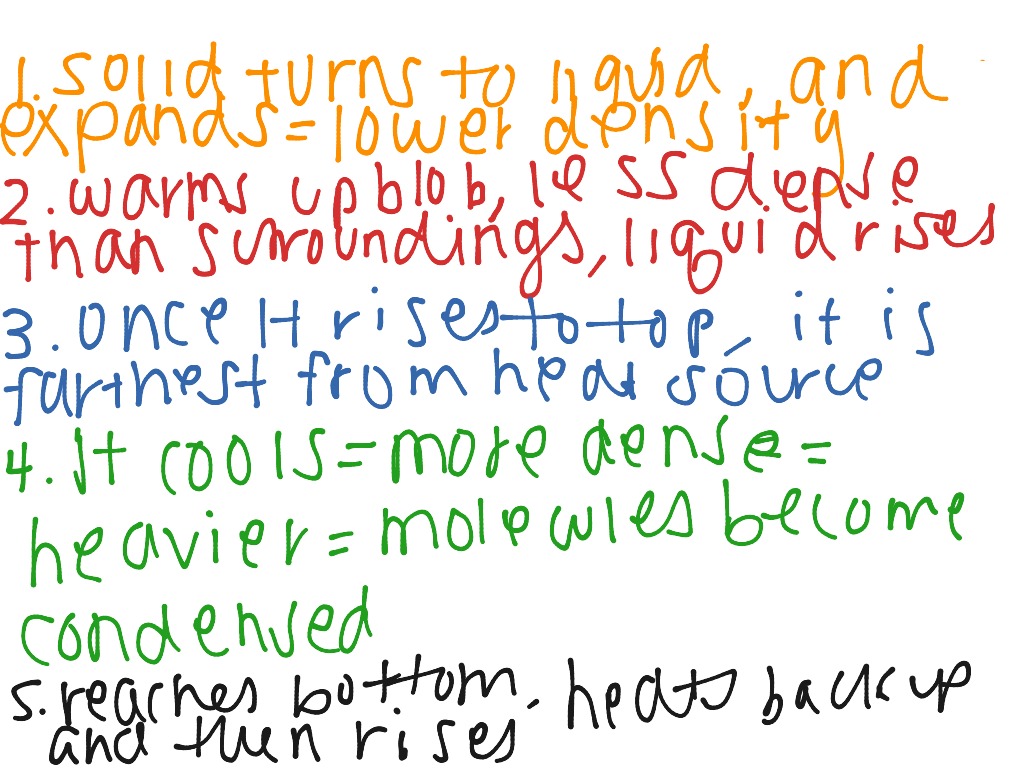 1. solid turns to liquid, and
expands = lower density
2. warms up blob, less dense
than surroundings, liquid rises
3. once it rises to top, it is
farthest from heat source
4. It cools = more dense =
heavier = molecules become
condensed
5. reaches bottom, heats back up
and then rises